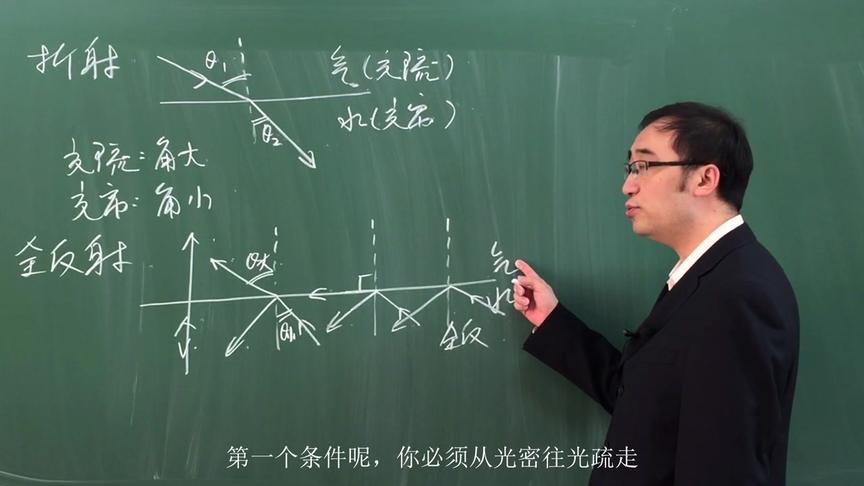 折射
θ₁
气(光疏)
水(光密)
θ₂
光疏:角大
光密:角小
全反射
θ大
气
水
θ小
全反
第一个条件呢，你必须从光密往光疏走